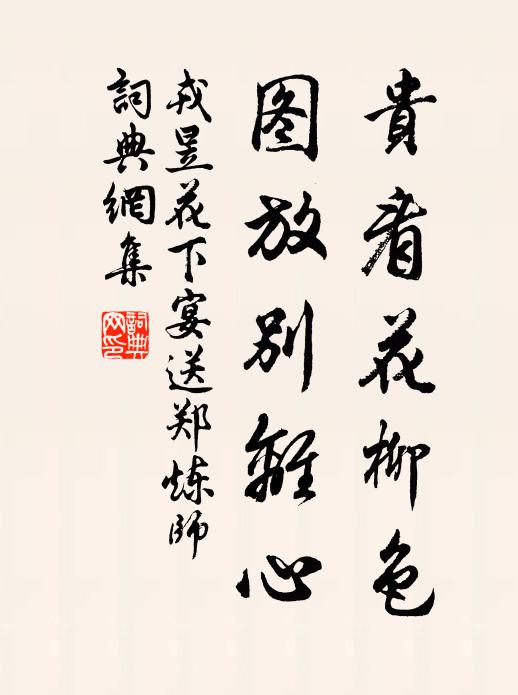 貴看花柳色
图放別離心
戎昱花下宴送郑炼師
詞典網集
詞典网印